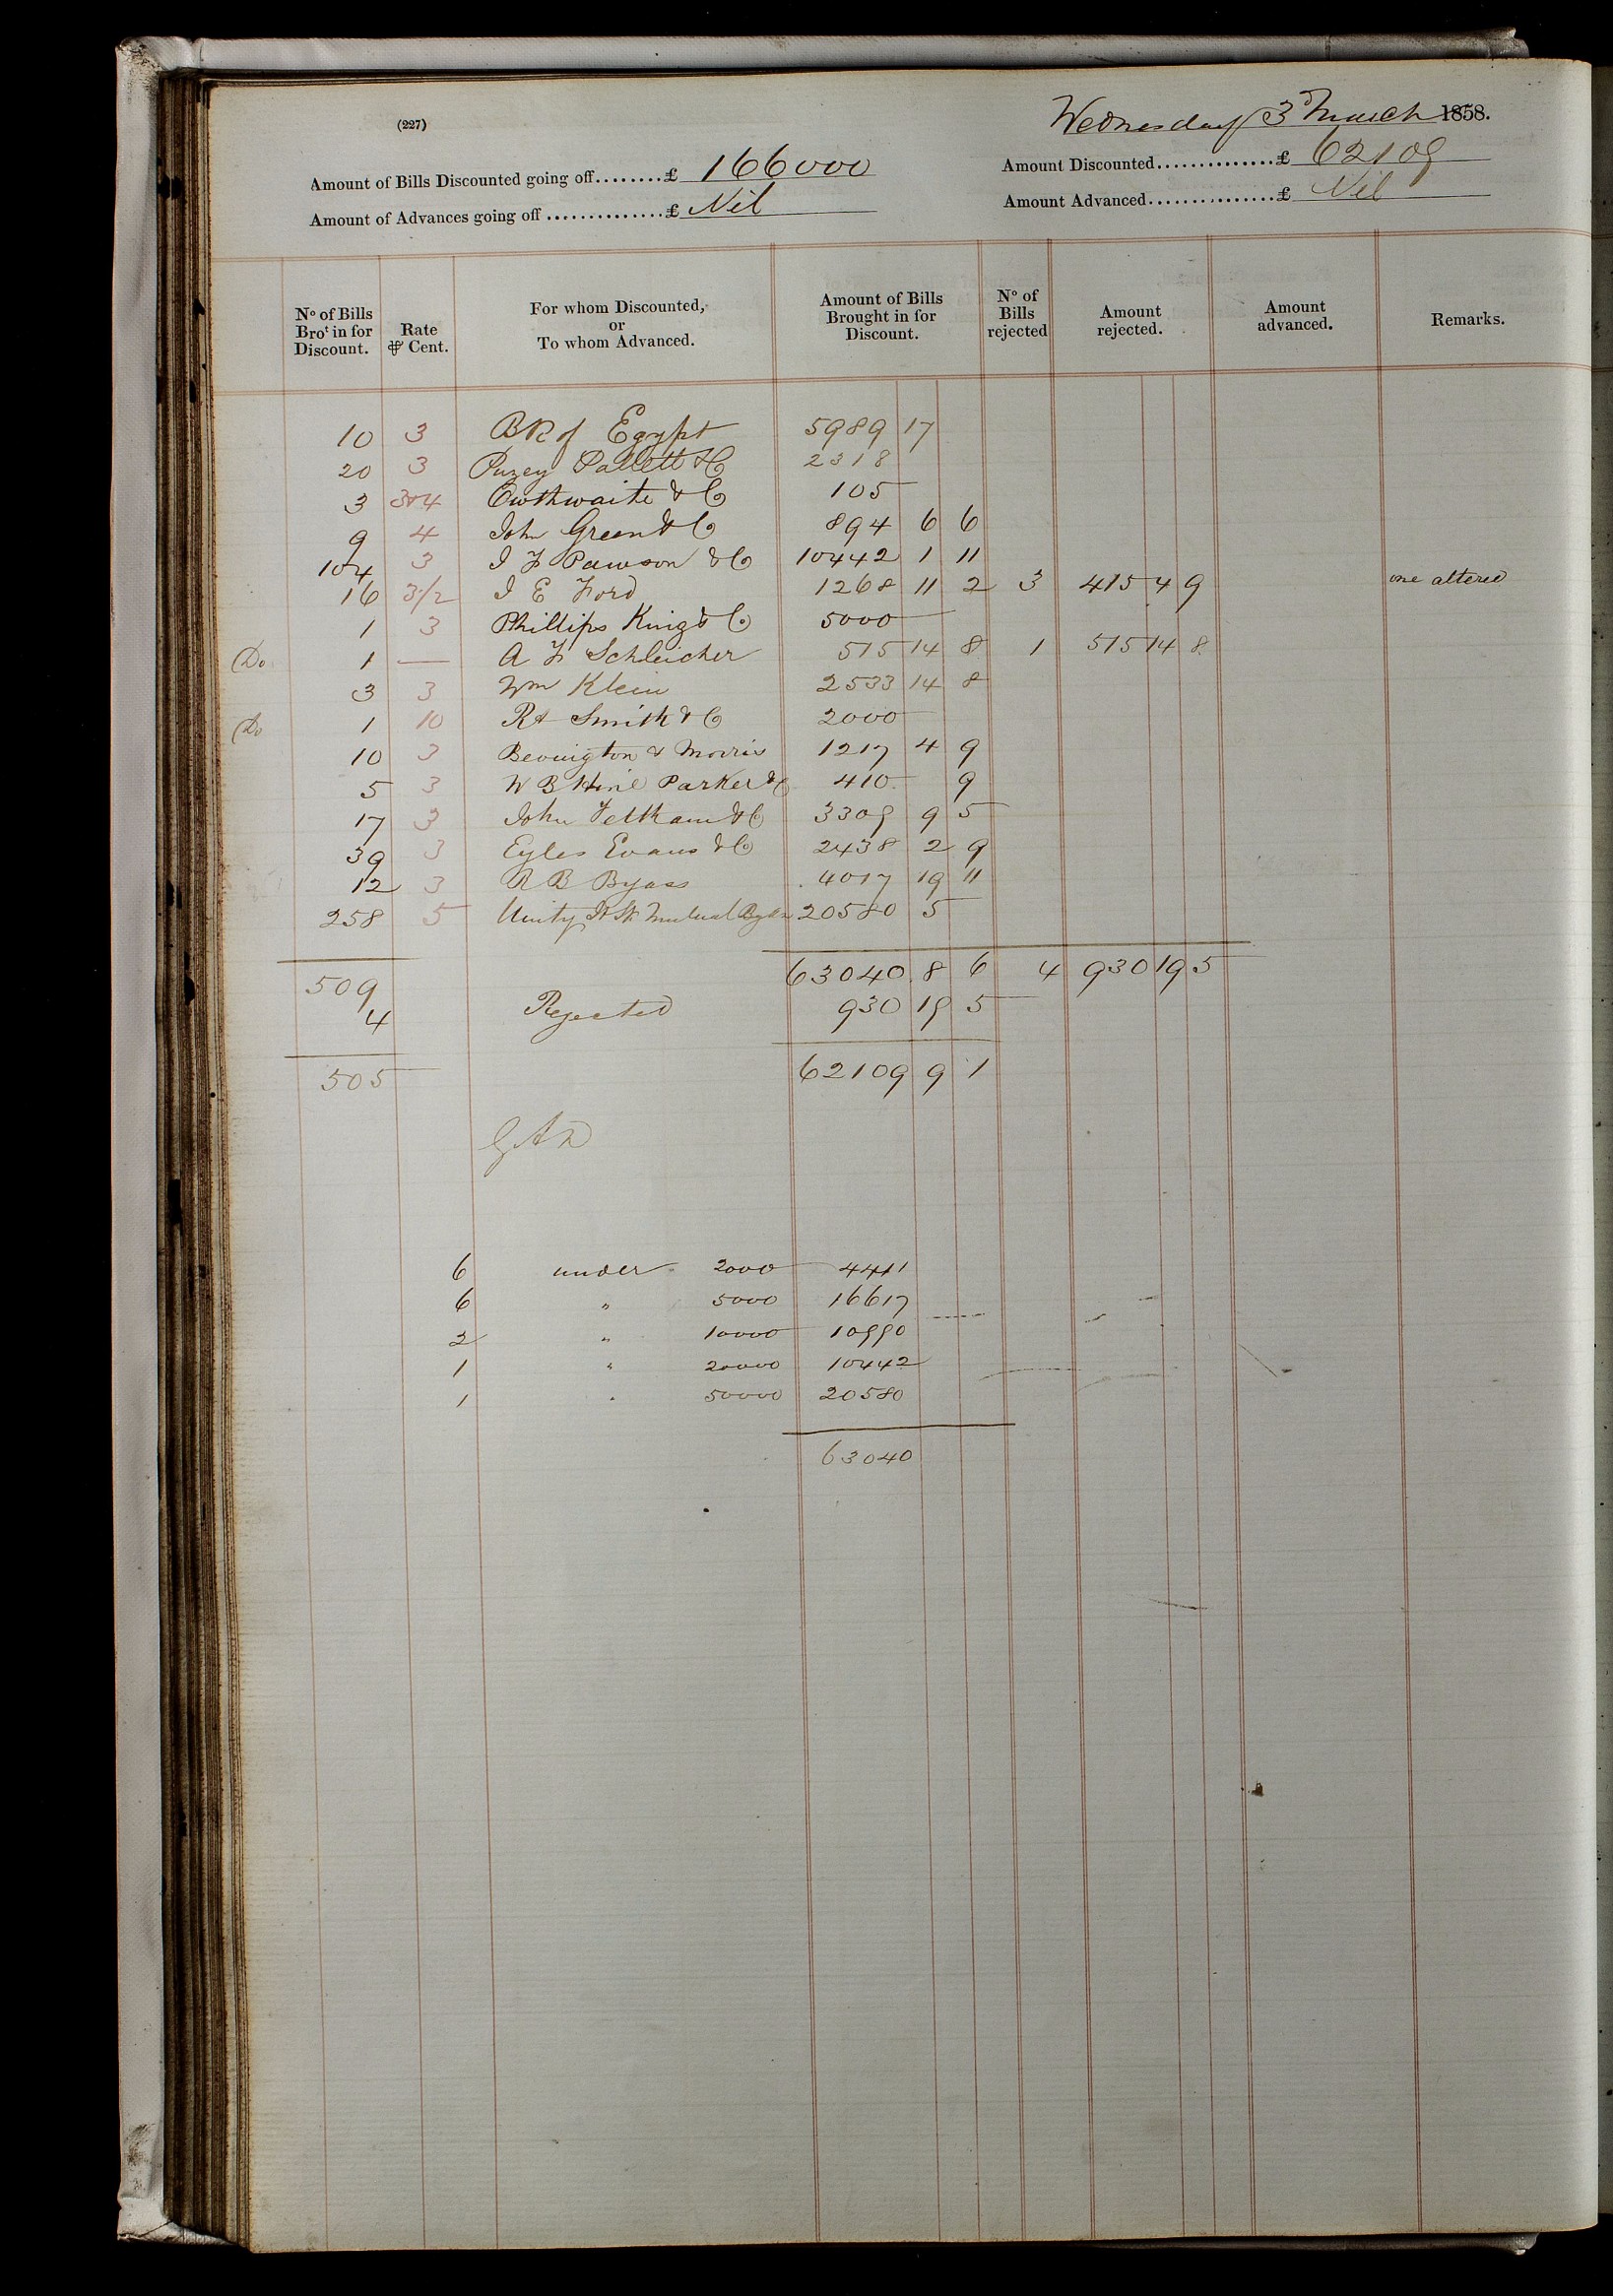 (227)
Wednesday 3 March 1858.
Amount of Bills Discounted going off........£ 166000
Amount Discounted..............£ 62109
Amount of Advances going off..............£ Nil
Amount Advanced..............£ Nil
Nº of Bills Broᵗ in for Discount. | Rate ⅌ Cent. | For whom Discounted, or To whom Advanced. | Amount of Bills Brought in for Discount. | Nº of Bills rejected | Amount rejected. | Amount advanced. | Remarks.
10 3 Bk of Egypt 5989 17
20 3 Puzey Pallett & Co 2318
3 3&4 Outhwaite & Co 105
9 4 John Green & Co 894 6 6
104 3 I F Pawson & Co 10442 1 11
16 3½ I E Ford 1268 11 2 3 415 4 9 one altered
1 3 Phillips King & Co 5000
Do 1 — A F Schleicher 515 14 8 1 515 14 8
3 3 Wm Klein 2533 14 8
Do 1 10 Rt Smith & Co 2000
10 3 Bevington & Morris 1217 4 9
5 3 W B Hine Parker & Co 410 9
17 3 John Feltham & Co 3309 9 5
39 3 Eyles Evans & Co 2438 2 9
12 3 R B Byass 4017 19 11
258 5 Unity Jt Sk Mutual 20580 5
509 63040 8 6 4 930 19 5
4 Rejected 930 19 5
505 62109 9 1
6 under 2000 4411
6 " 5000 16617
2 " 10000 10990
1 " 20000 10442
1 " 50000 20580
63040